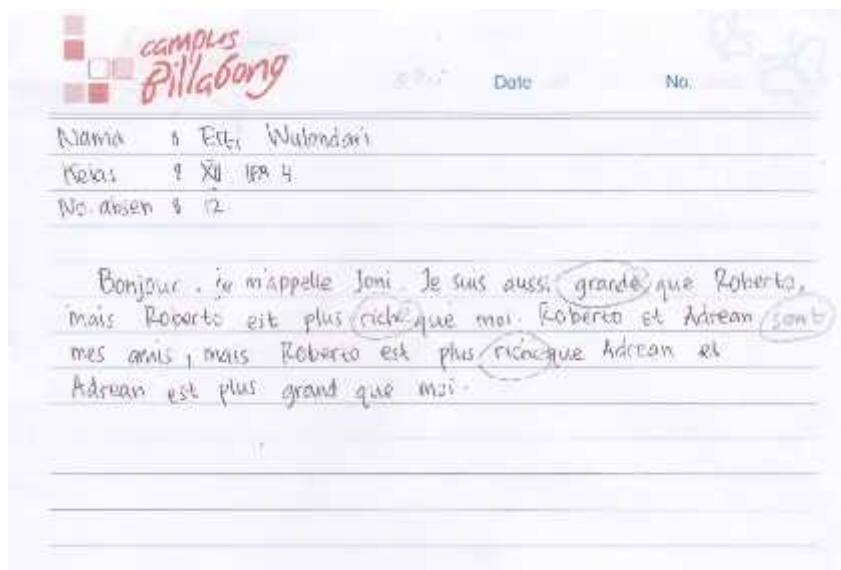 campus
Billabong
Date No.
Nama : Wulandari
Kelas : XII IPA 4
No. absen : 12
Bonjour. je m'appelle Joni. Je suis aussi grande que Roberto,
mais Roberto est plus riche que moi. Roberto et Adrean sont
mes amis, mais Roberto est plus riche que Adrean et
Adrean est plus grand que moi.